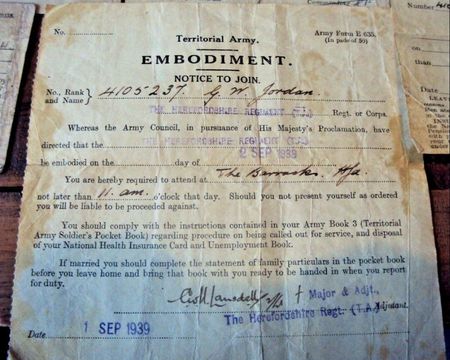 No.
Territorial Army.
Army Form E 635.
(In pads of 50)
EMBODIMENT.
NOTICE TO JOIN.
No., Rank and Name} 4105237 G. W. Jordan.
THE HEREFORDSHIRE REGIMENT (T.A.) Regt. or Corps.
Whereas the Army Council, in pursuance of His Majesty's Proclamation, have
directed that the THE HEREFORDSHIRE REGIMENT
be embodied on the 2 SEP 1939 day of
You are hereby required to attend at The Barracks. H/d
not later than 11. am. o'clock that day. Should you not present yourself as ordered
you will be liable to be proceeded against.
You should comply with the instructions contained in your Army Book 3 (Territorial
Army Soldier's Pocket Book) regarding procedure on being called out for service, and disposal
of your National Health Insurance Card and Unemployment Book.
If married you should complete the statement of family particulars in the pocket book
before you leave home and bring that book with you ready to be handed in when you report
for duty.
Major & Adjt,
The Herefordshire Regt. (T.A.) Adjutant.
Date 1 SEP 1939
Number
LEAVE